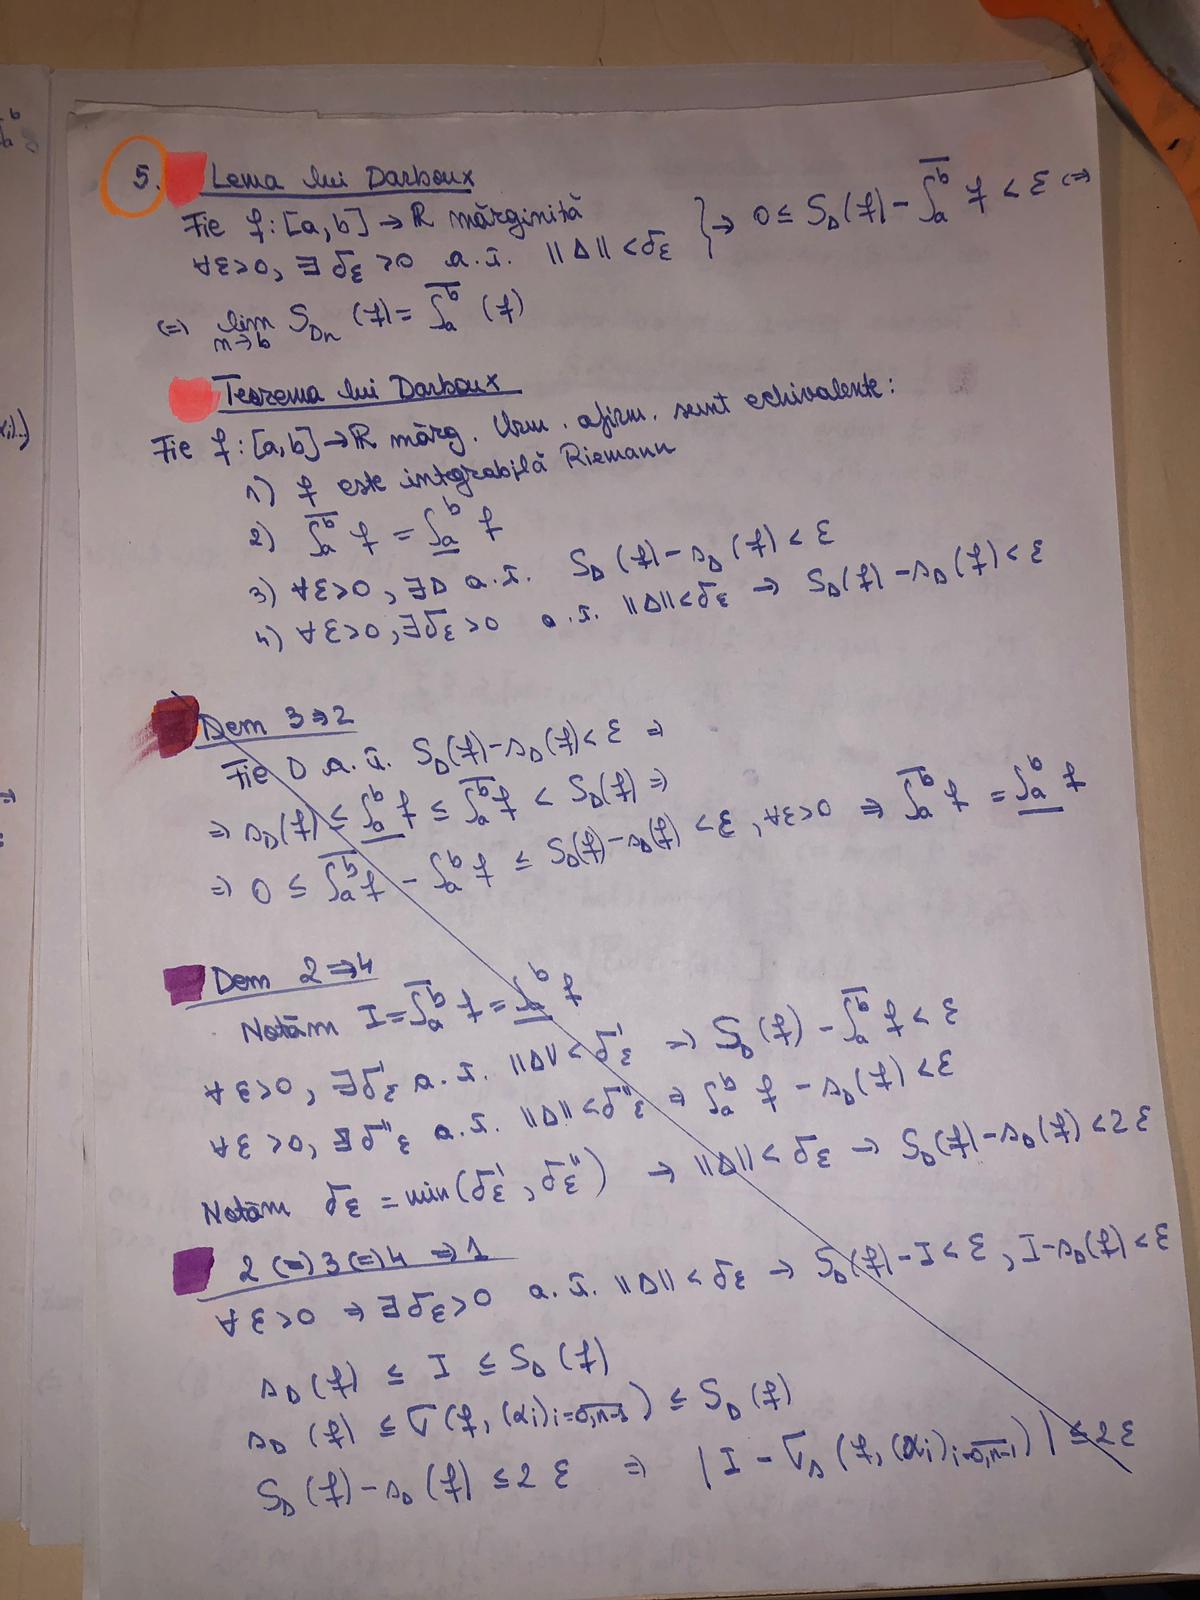 5. Lema lui Darboux
Fie f:[a,b]→ℝ mărginită
∀ε>0, ∃ δε >0 a.î. ||Δ|| <δε } → 0 ≤ S_Δ(f) - ∫̅_a^b f < ε (=)
(=) lim_{n→b} S_{Δn} (f) = ∫̅_a^b (f)
Teorema lui Darboux
Fie f:[a,b]→ℝ mărg. Urm. afirm. sunt echivalente:
1) f este integrabilă Riemann
2) ∫̅_a^b f = ∫̲_a^b f
3) ∀ε>0, ∃Δ a.î. S_Δ (f) - s_Δ (f) < ε
4) ∀ε>0, ∃δε >0 a.î. ||Δ||<δε → S_Δ(f) - s_Δ(f) < ε
Dem 3⇒2
Fie Δ a.î. S_Δ(f) - s_Δ(f) < ε ⇒
⇒ s_Δ(f) ≤ ∫̲_a^b f ≤ ∫̅_a^b f < S_Δ(f) ⇒
⇒ 0 ≤ ∫̅_a^b f - ∫_a^b f ≤ S_Δ(f) - s_Δ(f) < ε, ∀ε>0 ⇒ ∫̅_a^b f = ∫̲_a^b f
Dem 2⇒4
Notăm I = ∫̅_a^b f = ∫̲_a^b f
∀ε>0, ∃δ'ε a.î. ||Δ|| < δ'ε ⇒ S_Δ(f) - ∫̅_a^b f < ε
∀ε>0, ∃δ''ε a.î. ||Δ|| < δ''ε ⇒ ∫_a^b f - s_Δ(f) < ε
Notăm δε = min(δ'ε, δ''ε) → ||Δ|| < δε → S_Δ(f) - s_Δ(f) < 2ε
2 (=) 3 (=) 4 ⇒ 1
∀ε>0 ⇒ ∃δε>0 a.î. ||Δ|| < δε → S_Δ(f) - I < ε, I - s_Δ(f) < ε
s_Δ(f) ≤ I ≤ S_Δ(f)
s_Δ(f) ≤ σ(f, (αi)i=0,n-1) ≤ S_Δ(f)
S_Δ(f) - s_Δ(f) ≤ 2ε ⇒ |I - σ_Δ(f, (αi)i=0,n-1)| ≤ 2ε